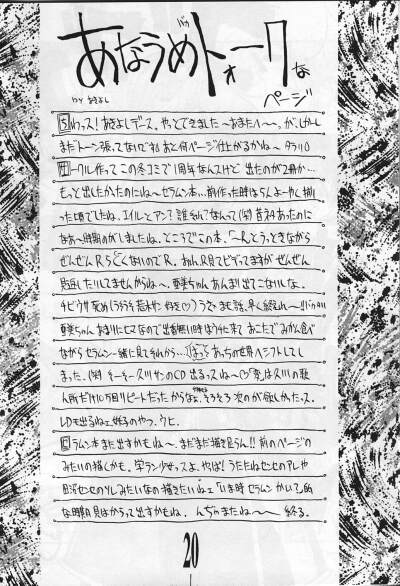 あなうめトォークな
ページ
by あきよし
ちわっス！あきよしデース。やっとできました〜おまたへ〜〜っ。が、しかーし
まだトーン張ってないです。あと何ページ仕上がるかね〜 タラリ
サークル作って この冬コミで1周年なんスけど 出たのが2冊か…
もっと出したかったのにね〜 セラムン本…前作った時はらんよーやく描
った頃でしたね。エイルとアン？誰それ？なんて(笑) 昔スラあったのに
なあ〜 時期のがしましたね。ところでこの本、「〜R とうっときながら
ぜんぜん R らしくないので R。われ R 見てビデってますが ぜんぜん
見返したりしてませんからね〜。亜美ちゃん あんまり出てこないしな。
チビウサ 死め(うううそ 若木サン 好き♡) うさぎまも 話、早く終えれ〜!!
亜美ちゃん あまりにヒマなので 出番無い時はうちに来て おこたでみかん食べ
ながらセラムン一緒に見てそれから… はっ あっちの世界へシフトしてし
まった。(笑) そーそー久川サンのCD 出るっスね〜♡ 「恋」は久川の歌
ん所だけ10万回リピートだったからなぁ。そろそろ次のが欲しかったっス。
LDも出るねェ 始子のやつ。ウヒ。
セラムン本 また出すかもね〜。まだまだ描き足らん!! 前のページの
みたいの描くかも。学ラン少女ってよ。やば！うたたねセンセのアレや
田沼センセのソレみたいなの描きたいねェ 「いま時セラムン かい？」的
な時期見はからって出すかもね。んぢゃ またね〜〜 終る。
20